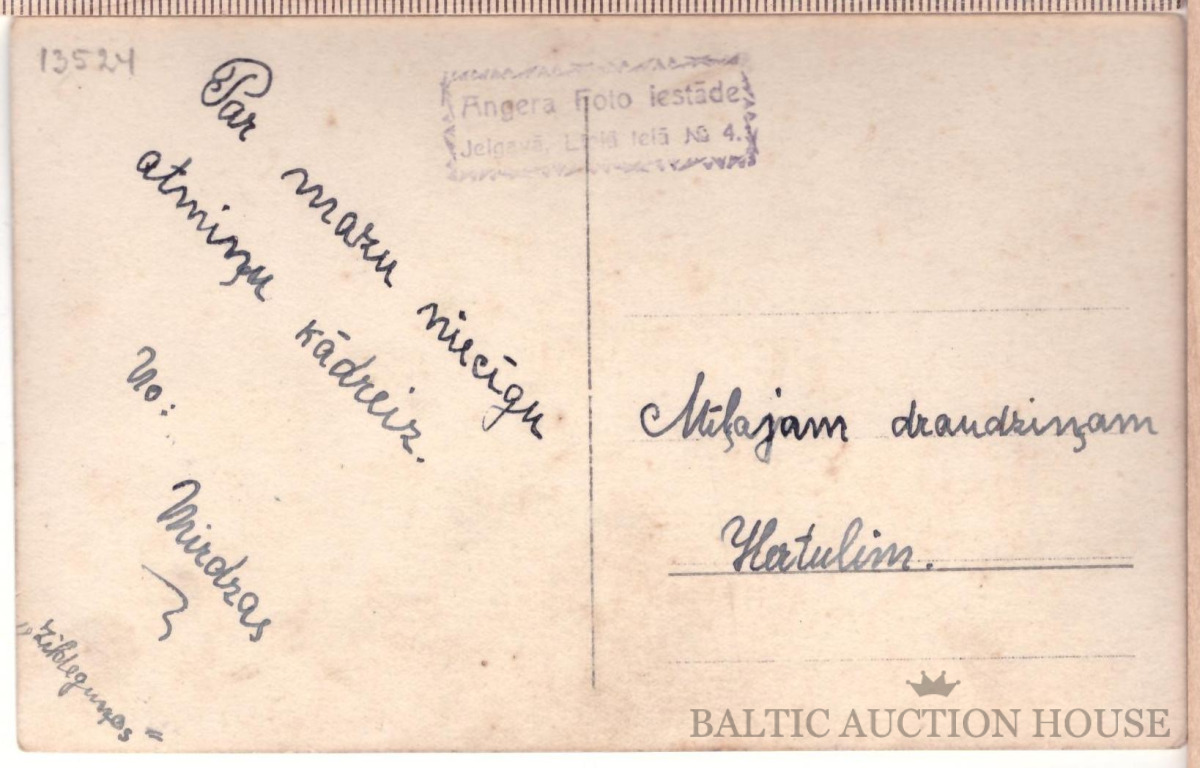 13524
Par mazu niecīgu
atmiņu kādreiz.
No:
Mirdzas
Angera Foto iestāde
Jelgavā, ielā № 4.
Mīļajam draudziņam
Hertulim.
BALTIC AUCTION HOUSE